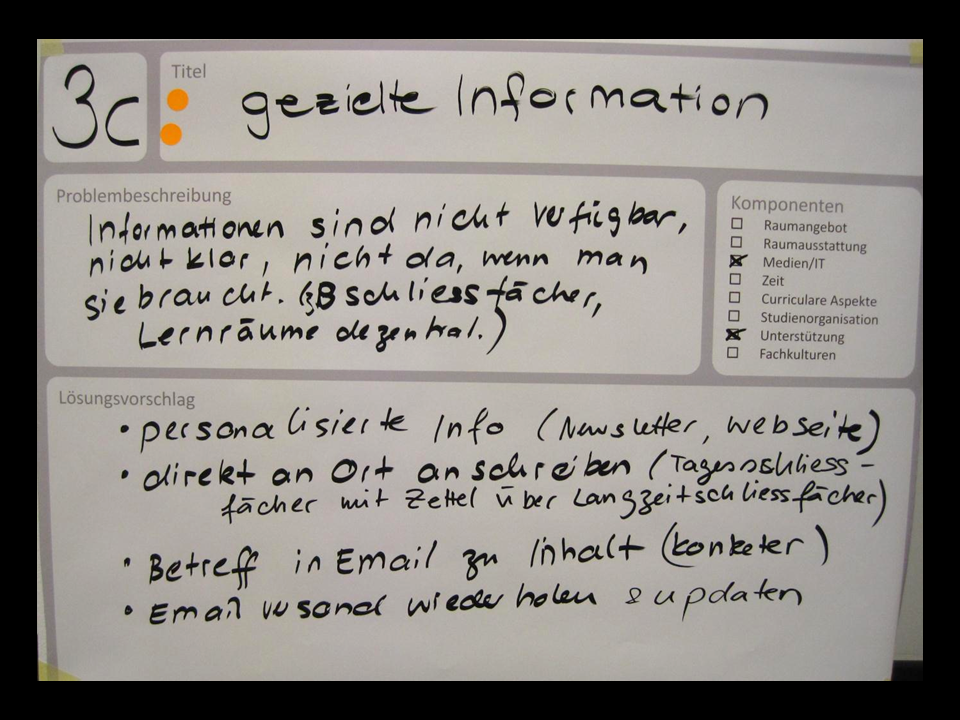 3c
Titel
gezielte Information
Problembeschreibung
Informationen sind nicht verfügbar,
nicht klar, nicht da, wenn man
sie braucht. (zB schliessfächer,
Lernräume dezentral.)
Komponenten
Raumangebot
Raumausstattung
Medien/IT
Zeit
Curriculare Aspekte
Studienorganisation
Unterstützung
Fachkulturen
Lösungsvorschlag
• personalisierte Info (Newsletter, webseite)
• direkt an Ort anschreiben (Tagesschliess-
fächer mit Zettel über Langzeitschliessfächer)
• Betreff in Email zu Inhalt (konketer)
• Email versand wiederholen & updaten